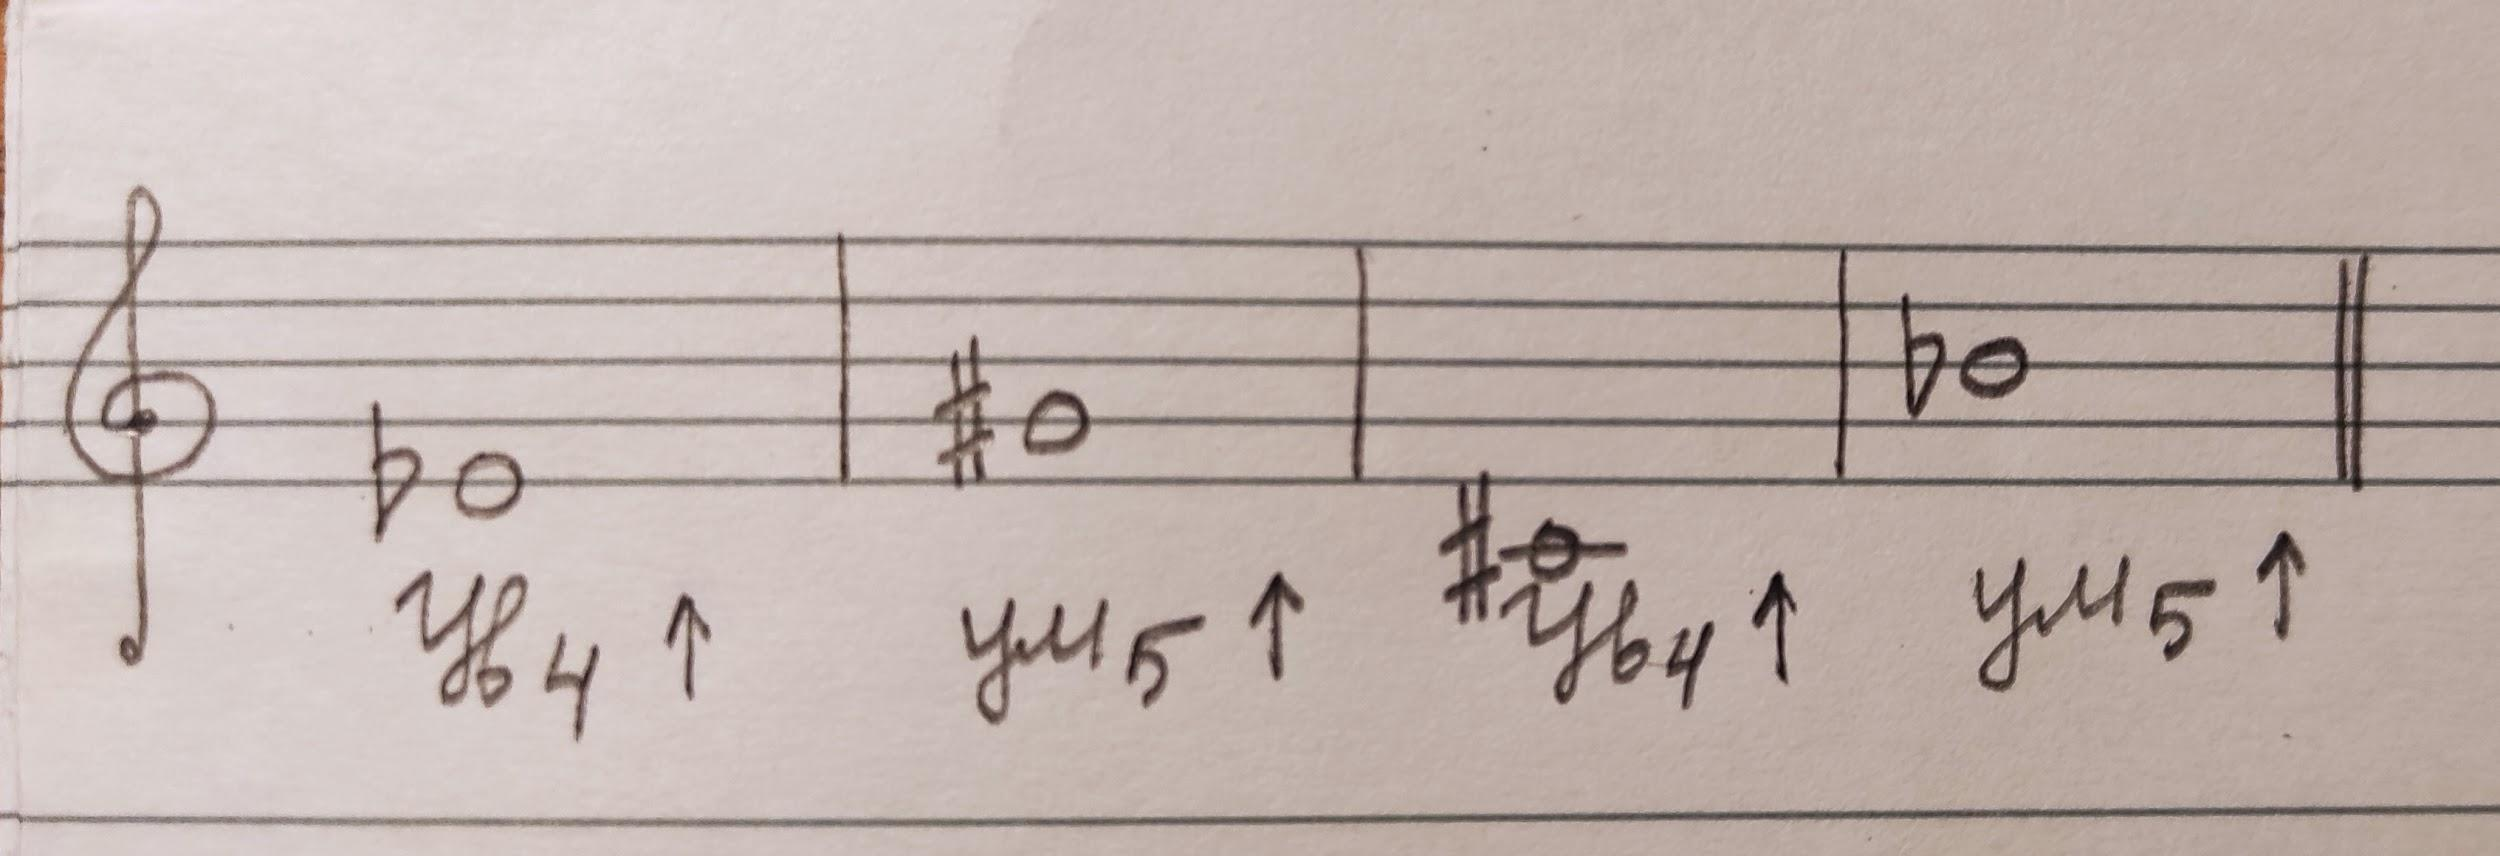 Ув4 ↑ ум5 ↑ Ув4 ↑ ум5 ↑